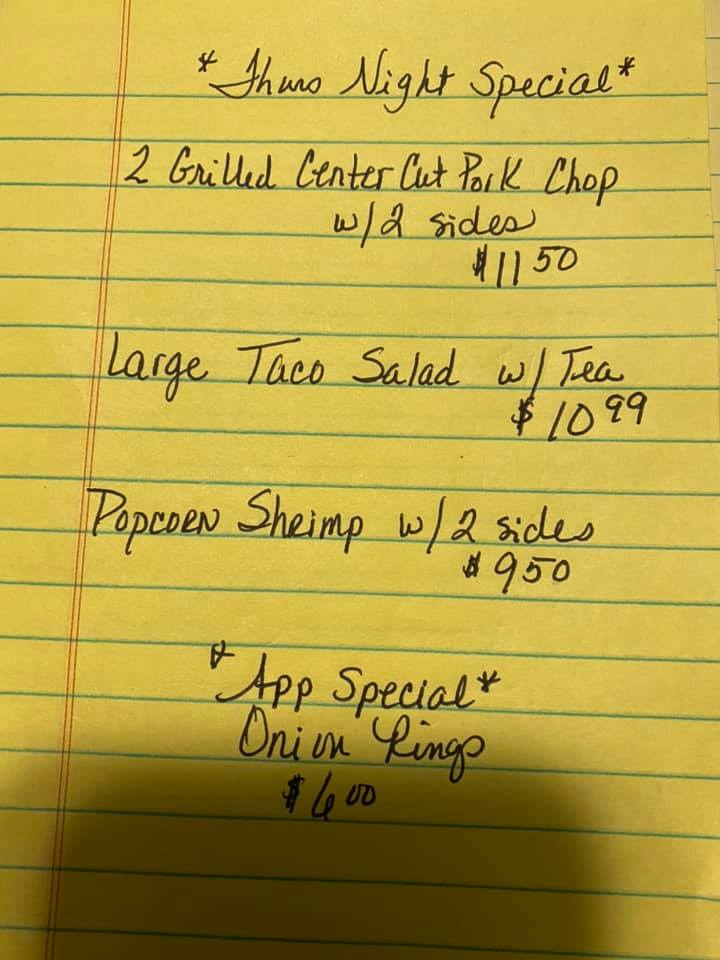 *Thurs Night Special*
2 Grilled Center Cut Pork Chop
w/2 sides
$11 50
Large Taco Salad w/ Tea
$10 99
Popcorn Shrimp w/2 sides
$9 50
*App Special*
Onion Rings
$6 00